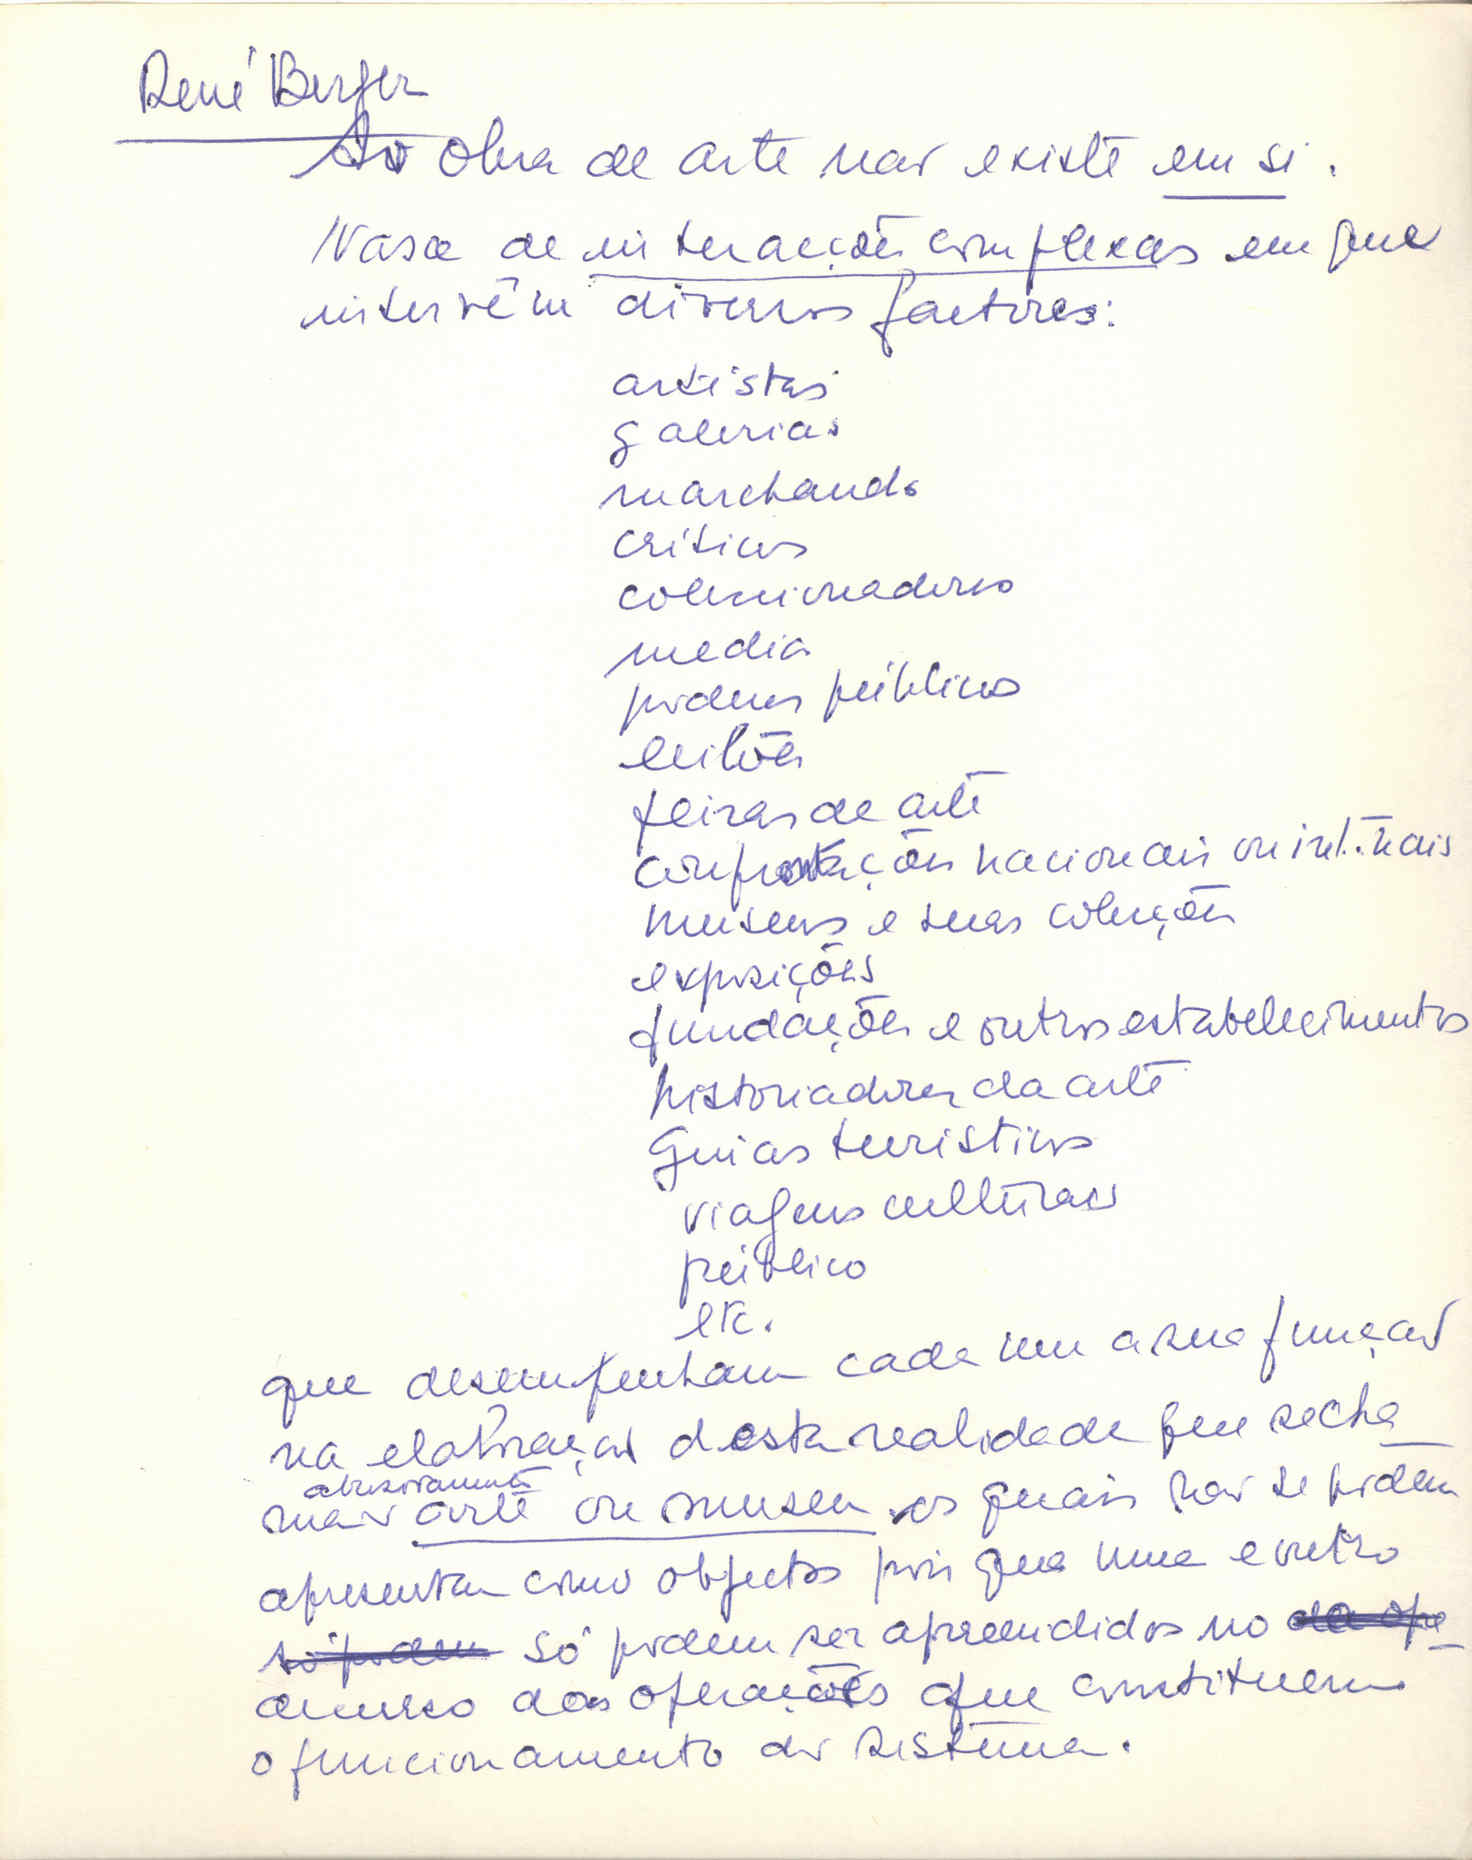 René Berger
A obra de arte não existe em si.
Nasce de interacções complexas em que
intervêm diversos factores:
artistas
galerias
marchands
críticos
coleccionadores
media
poderes públicos
leilões
feiras de arte
confrontações nacionais ou int.nais
museus e suas colecções
exposições
fundações e outros estabelecimentos
historiadores da arte
Guias turísticos
viagens culturais
público
etc.
que desempenham cada um a sua função
na elaboração desta realidade que se chama
abusivamente
arte ou museu os quais não se podem
apresentar como objectos pois que uma e outro
só podem só podem ser apreendidos no da ope
decurso das operações que constituem
o funcionamento do sistema.